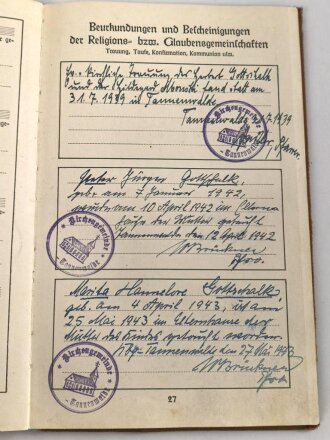 Beurkundungen und Bescheinigungen
der Religions- bzw. Glaubensgemeinschaften
Trauung, Taufe, Konfirmation, Kommunion usw.
kirchliche Trauung des Gottschalk
und der fand statt am
31.7.1939 in Tannenwalde
Tannenwalde 31.7.1939
Pfarrer
Kirchengemeinde
Tannenwalde
Jürgen Gottschalk
geb. am 7. Januar 1942,
wurde am 10 April 1942 im
der Mutter getauft
Tannenwalde den 12 April 1942
Brückner
Pfarrer
Kirchengemeinde
Tannenwalde
Marita Hannelore Gottschalk
geb. am 4 April 1943, ist am
25 Mai 1943 im der
Mutter des Kindes getauft worden
Kbg. Tannenwalde den 27 Mai 1943
Brückner
Kirchengemeinde
Tannenwalde
27